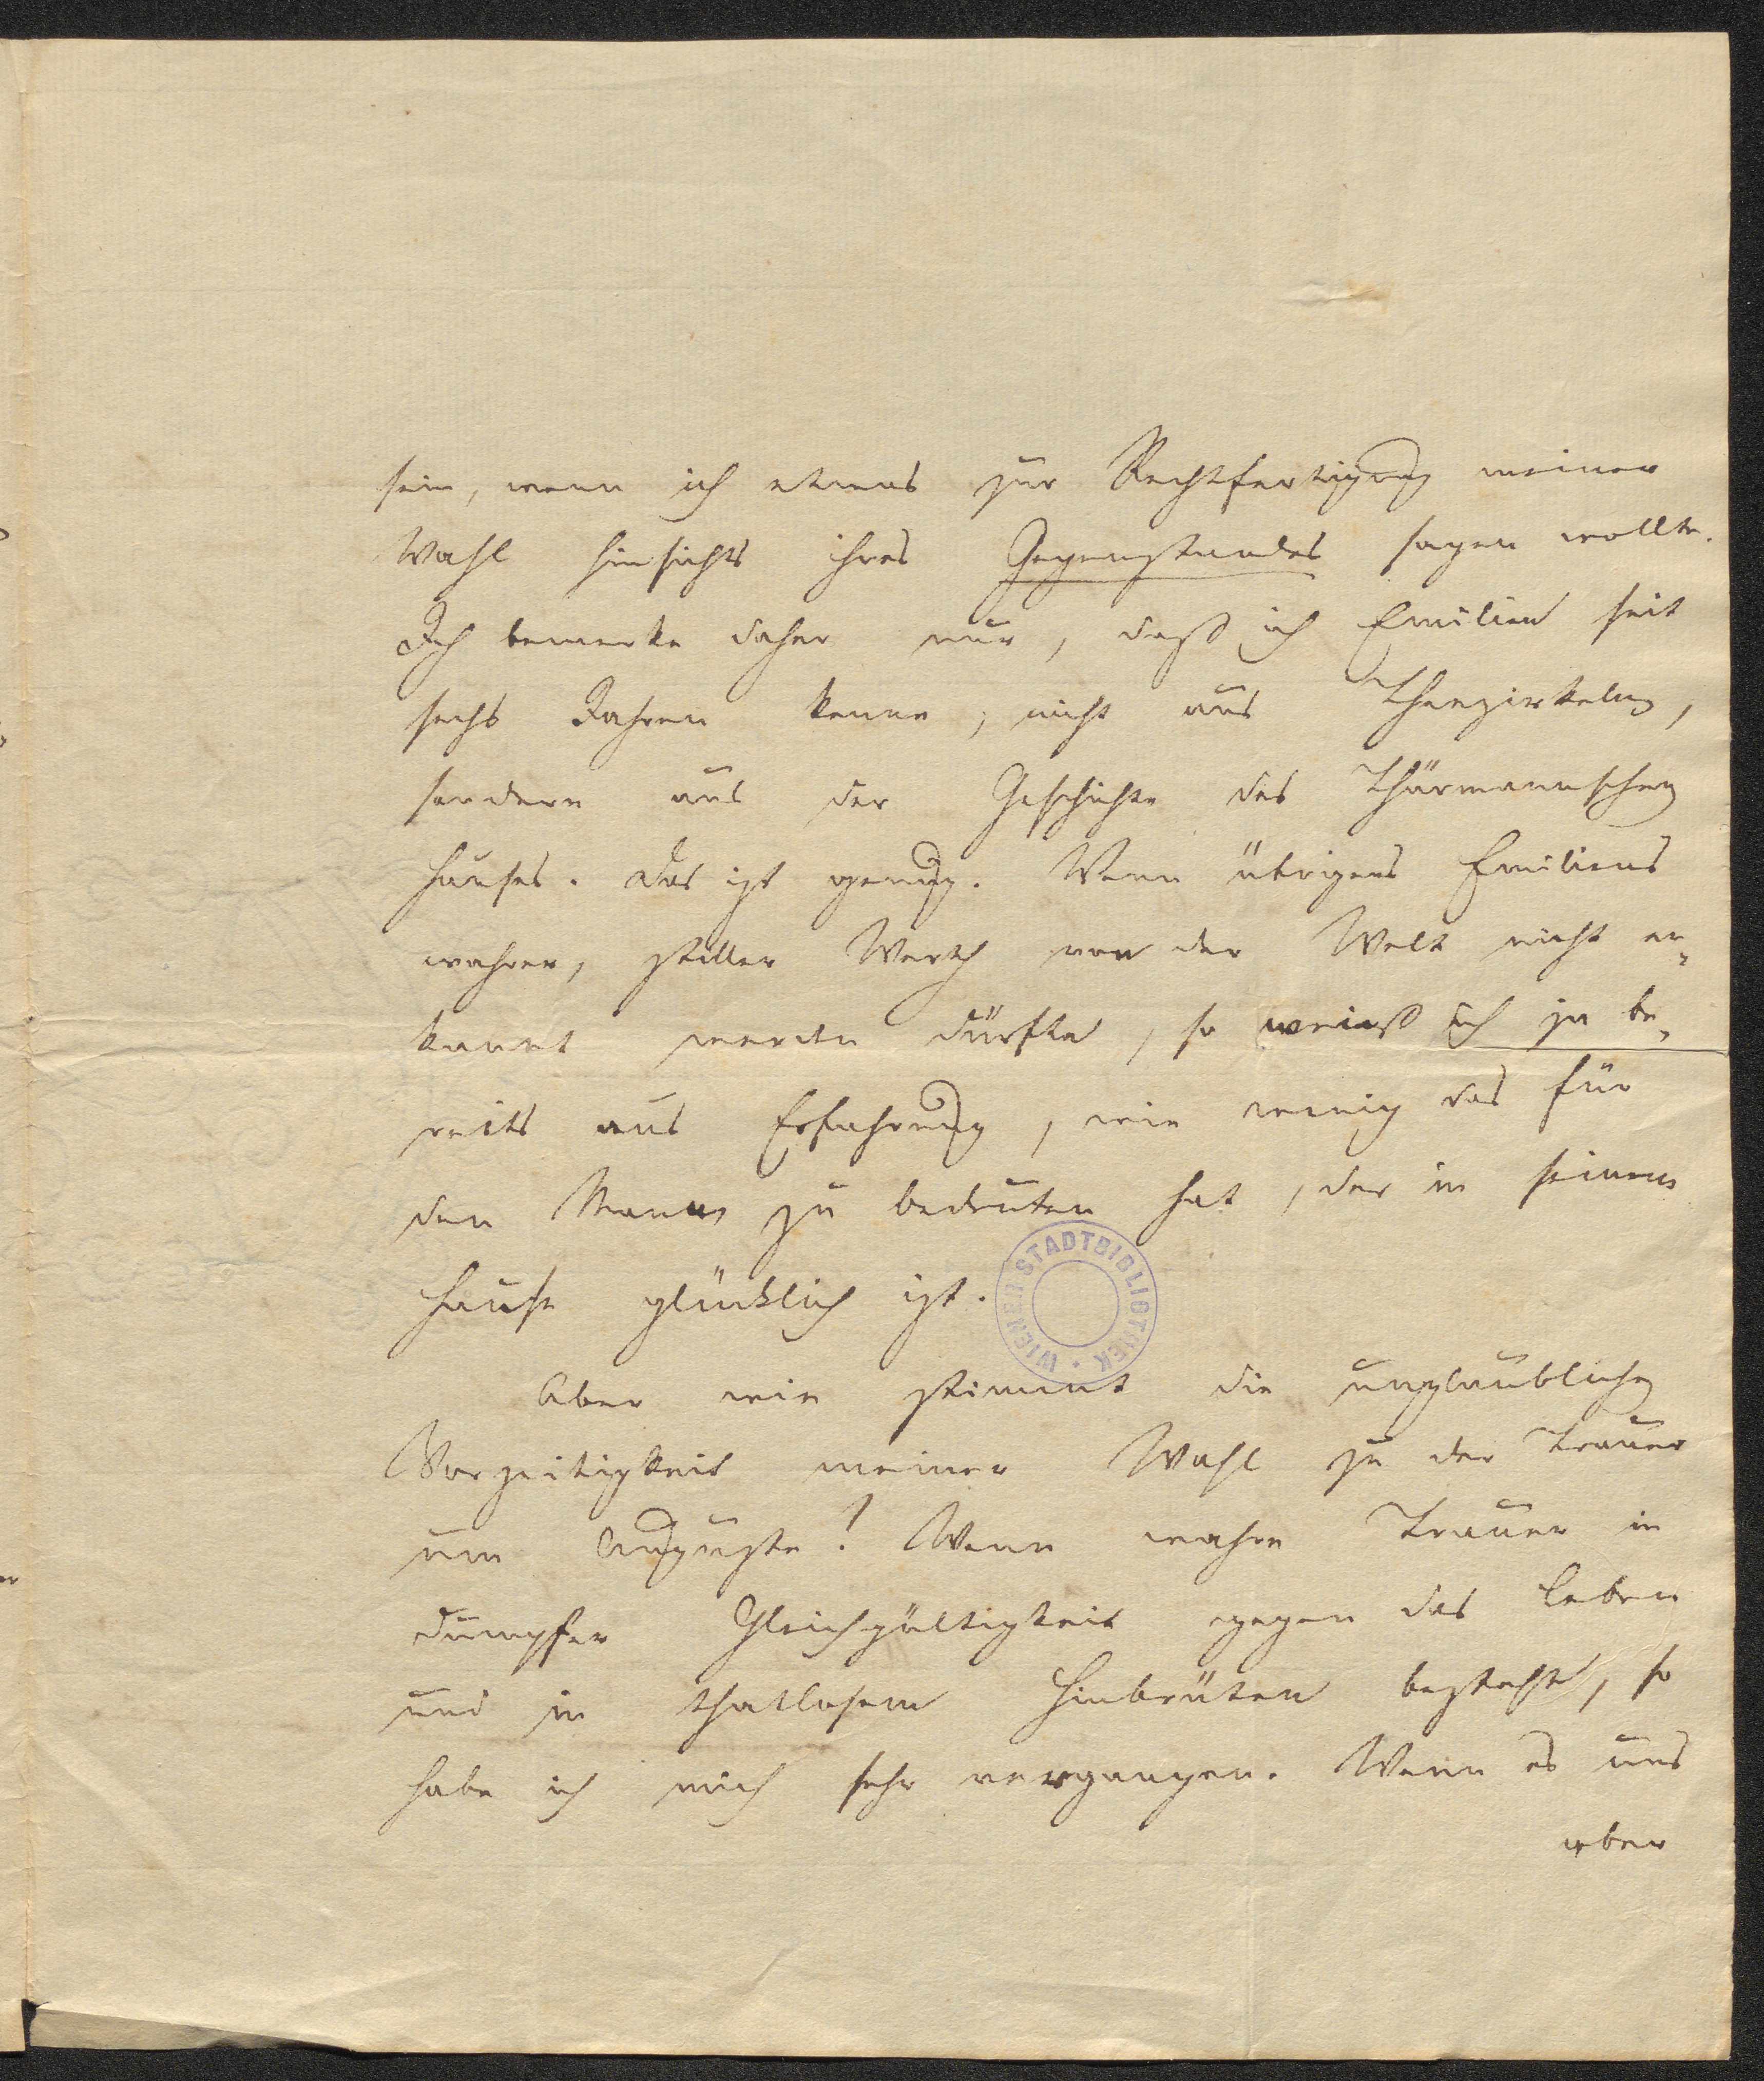 sein, wenn ich etwas zur Rechtfertigung meiner
Wahl hinsichts ihres Gegenstandes sagen wollte.
Ich bemerke daher nur, daß ich Emilien seit
sechs Jahren kenne, nicht aus Theezirkeln,
sondern aus der Geschichte des Thürmannschen
Hauses. Das ist genug. Wenn übrigens Emiliens
wahrer, stiller Werth von der Welt nicht er-
kannt werden dürfte, so weiß ich ja be-
reits aus Erfahrung, wie wenig das für
den Mann zu bedeuten hat, der in seinem
Hause glücklich ist.
WIENER STADTBIBLIOTHEK
Aber wie stimmt die unglaubliche
Vorzeitigkeit meiner Wahl zu der Trauer
um Auguste! Wenn wahre Trauer in
dumpfer Gleichgültigkeit gegen das Leben
und in thatlosem Hinbrüten besteht, so
habe ich mich sehr vergangen. Wenn es uns
aber